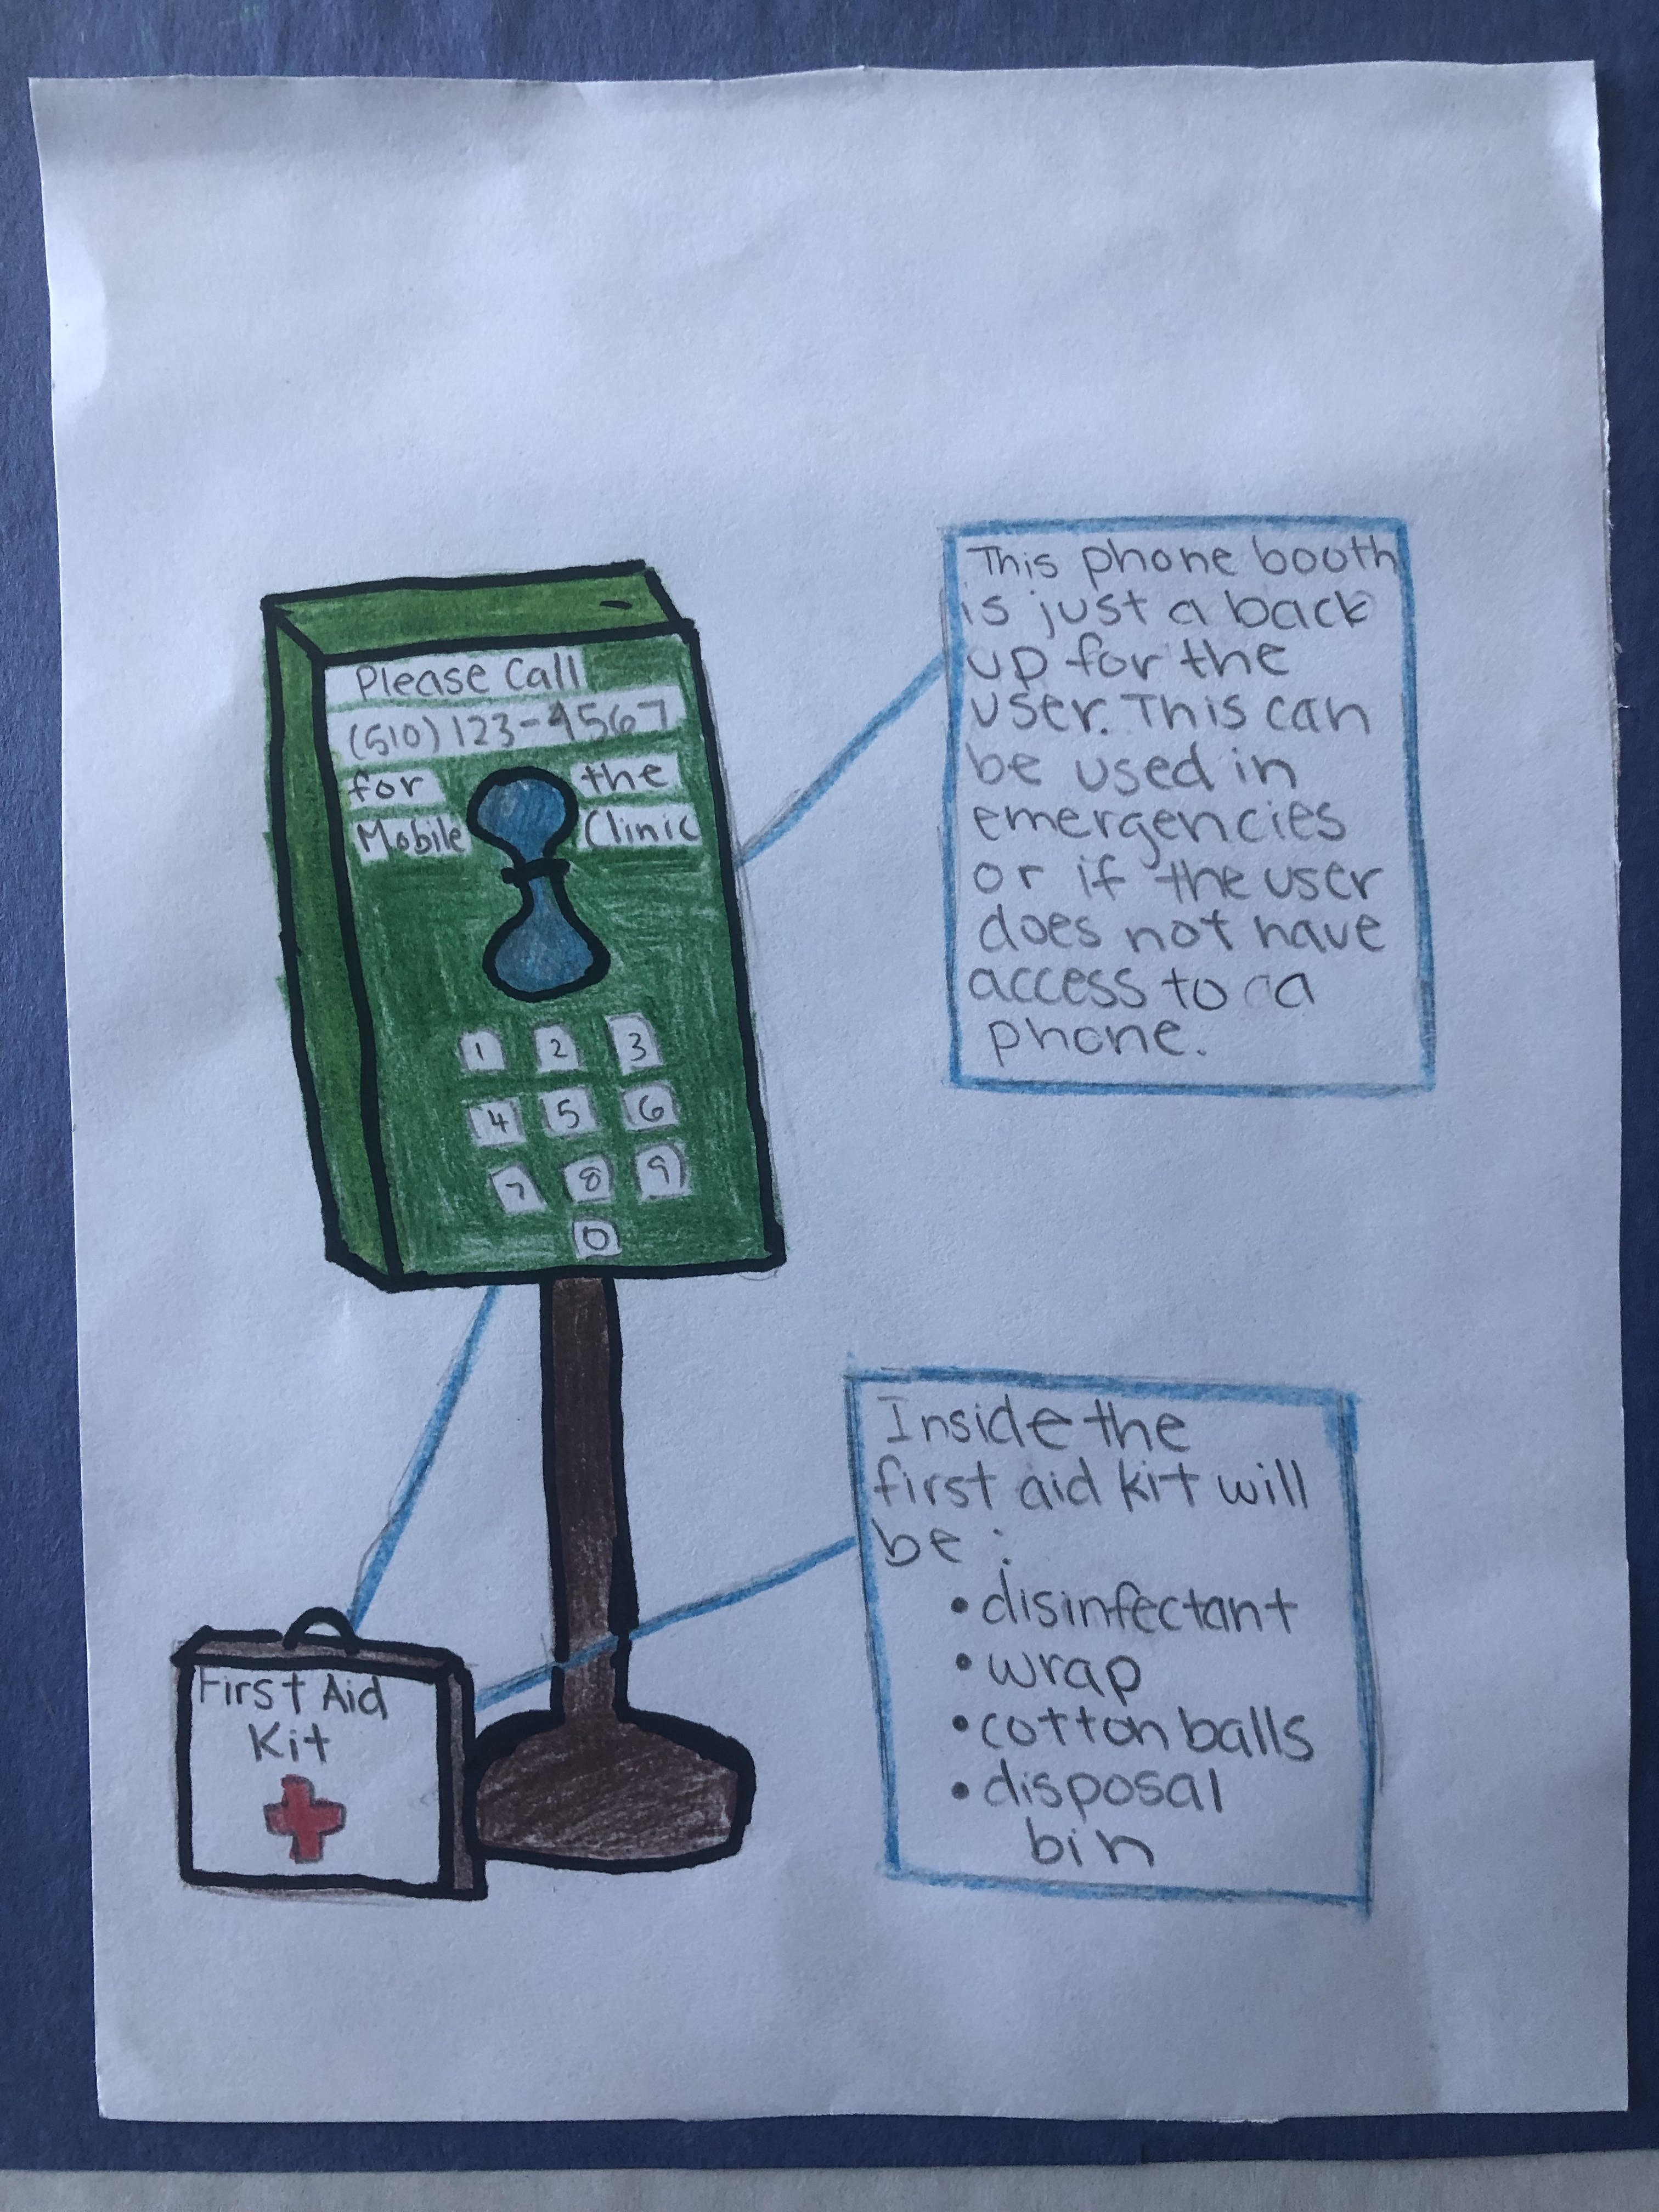 Please Call
(510) 123-4567
for the
Mobile Clinic
1 2 3
4 5 6
7 8 9
0
This phone booth
is just a back
up for the
user. This can
be used in
emergencies
or if the user
does not have
access to a
phone.
First Aid
Kit
Inside the
first aid kit will
be :
• disinfectant
• wrap
• cotton balls
• disposal
bin